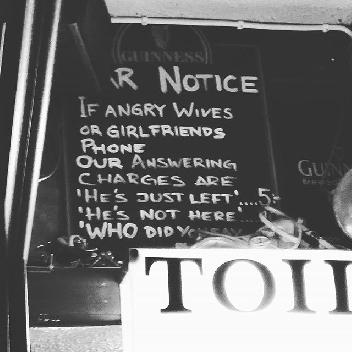 GUINNESS
AR NOTICE
IF ANGRY WIVES
OR GIRLFRIENDS
PHONE
OUR ANSWERING
CHARGES ARE
'HE'S JUST LEFT'....5-
'HE'S NOT HERE'
'WHO DID YOU SAY
GUIN
TOIL